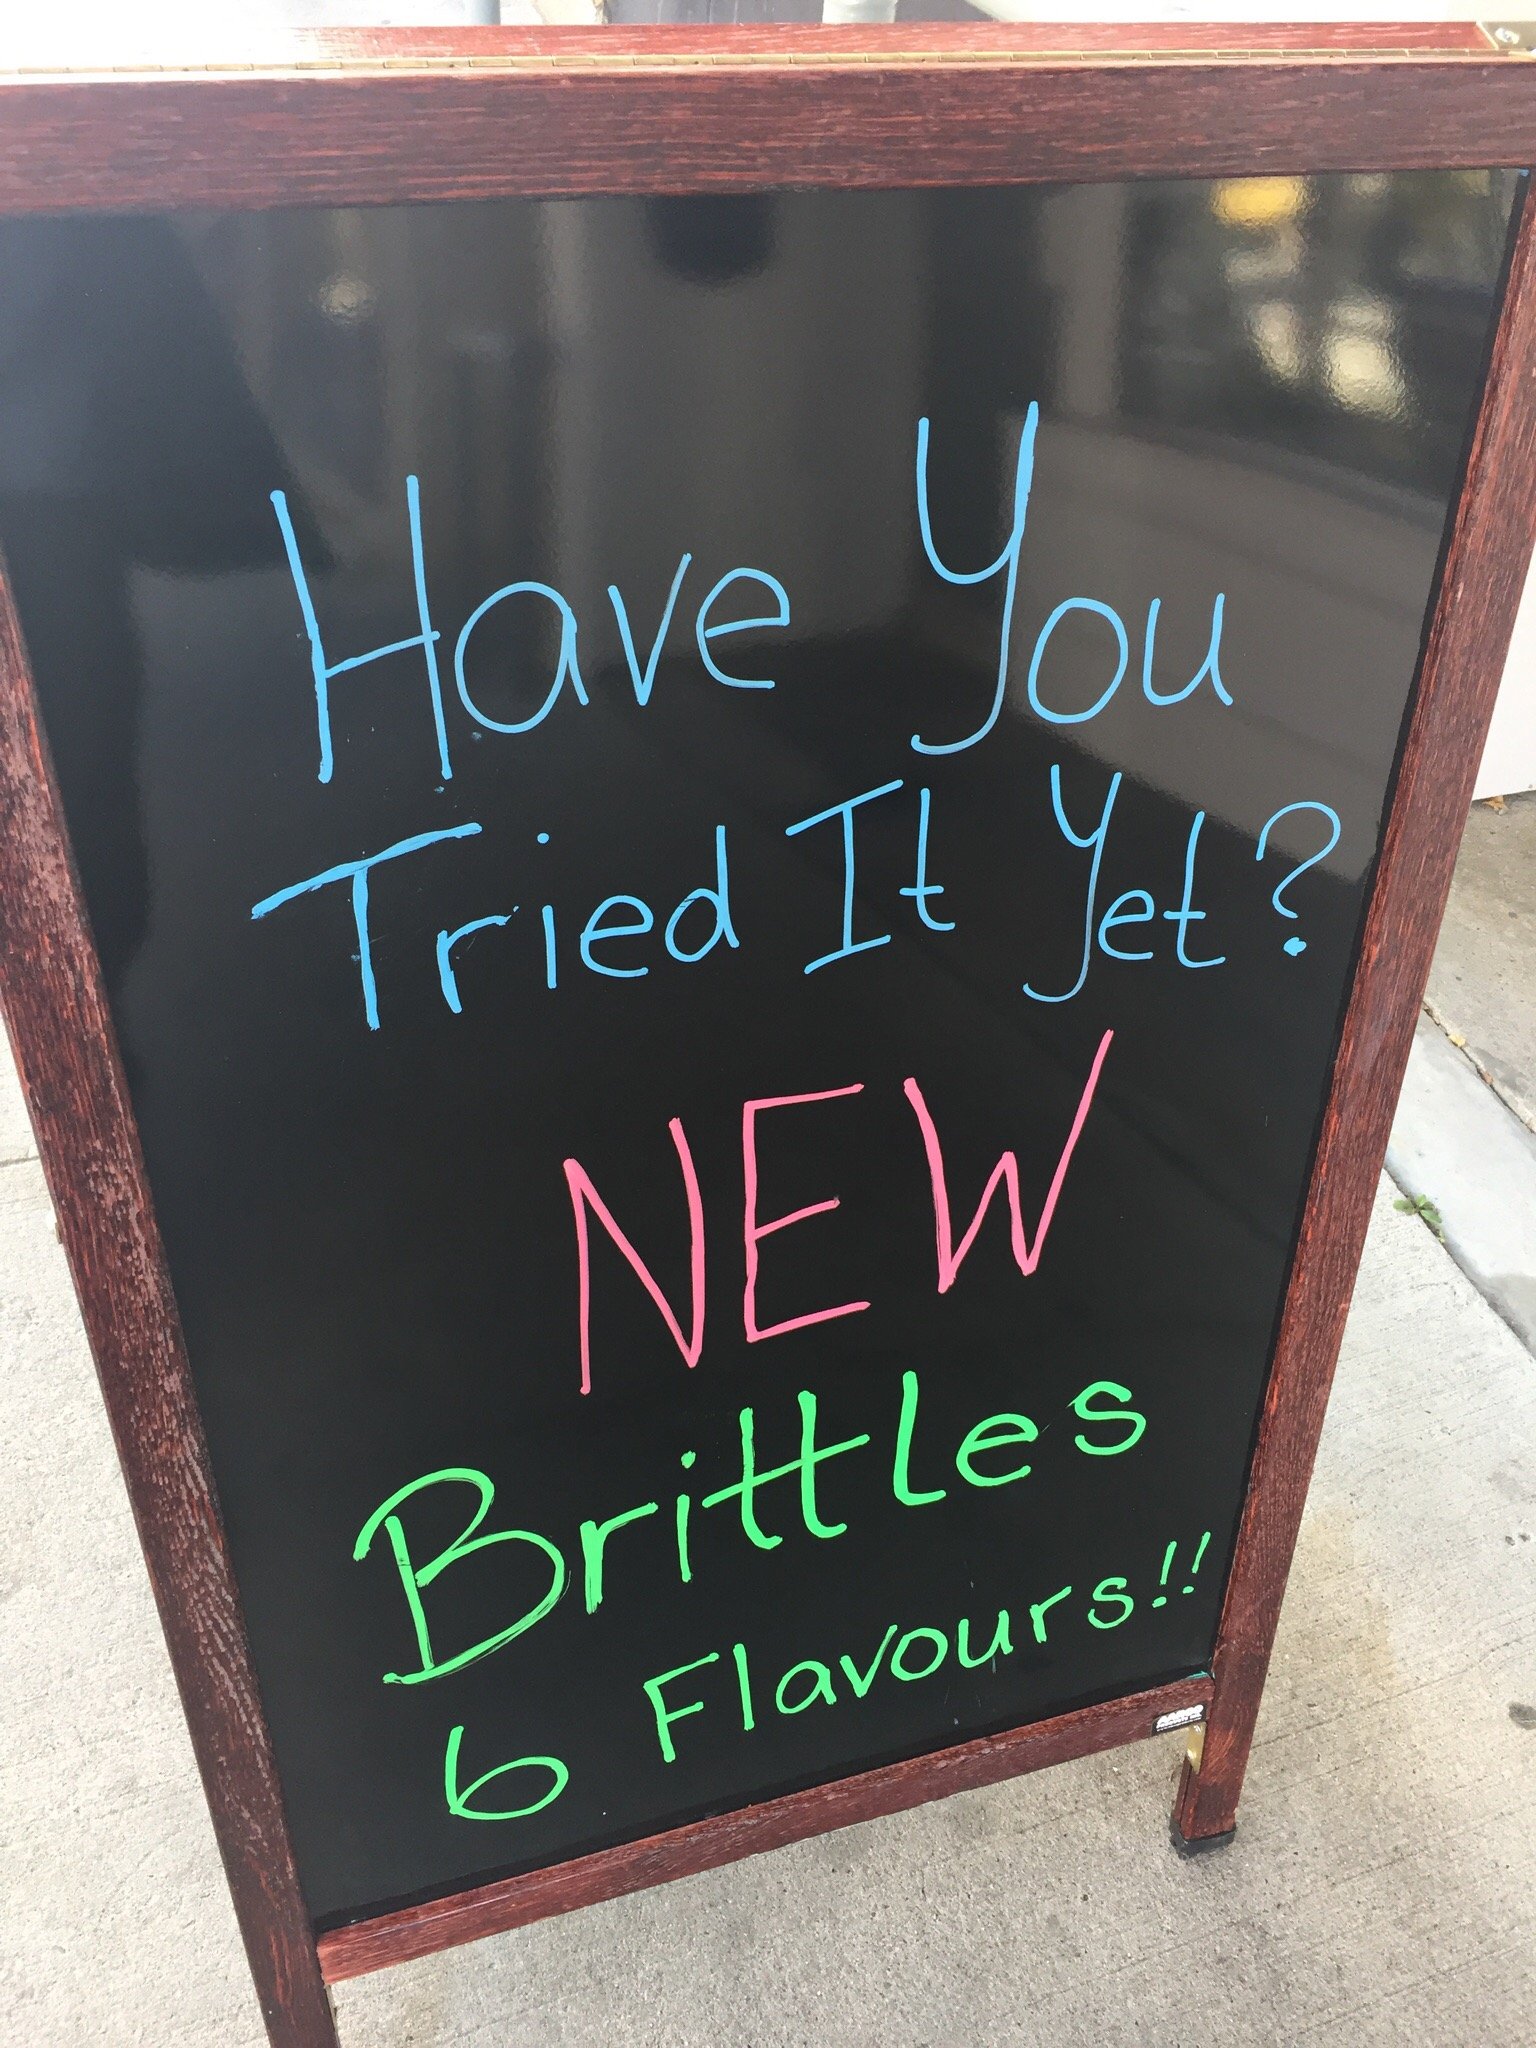 Have You
Tried It Yet?
NEW
Brittles
6 Flavours!!